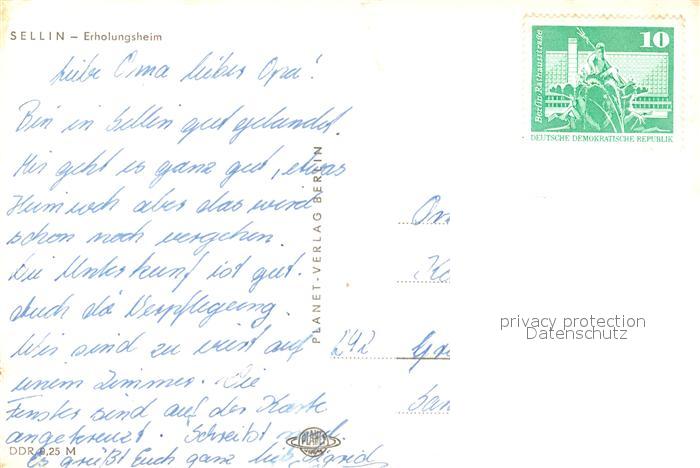 SELLIN – Erholungsheim
Liebe Oma lieber Opa!
Bin in Sellin gut gelandet.
Mir geht es ganz gut, etwas
Heimweh aber das wird
schon noch vergehen.
Die Unterkunft ist gut.
Auch die Verpflegung.
Wir sind zu viert auf
einem Zimmer. Die
Fenster sind auf der Karte
angekreuzt. Schreibt mal.
Es grüßt Euch ganz lieb
DDR 0,25 M
PLANET-VERLAG BERLIN
PLANET
10
Berlin Rathausstraße
DEUTSCHE DEMOKRATISCHE REPUBLIK
242
privacy protection
Datenschutz